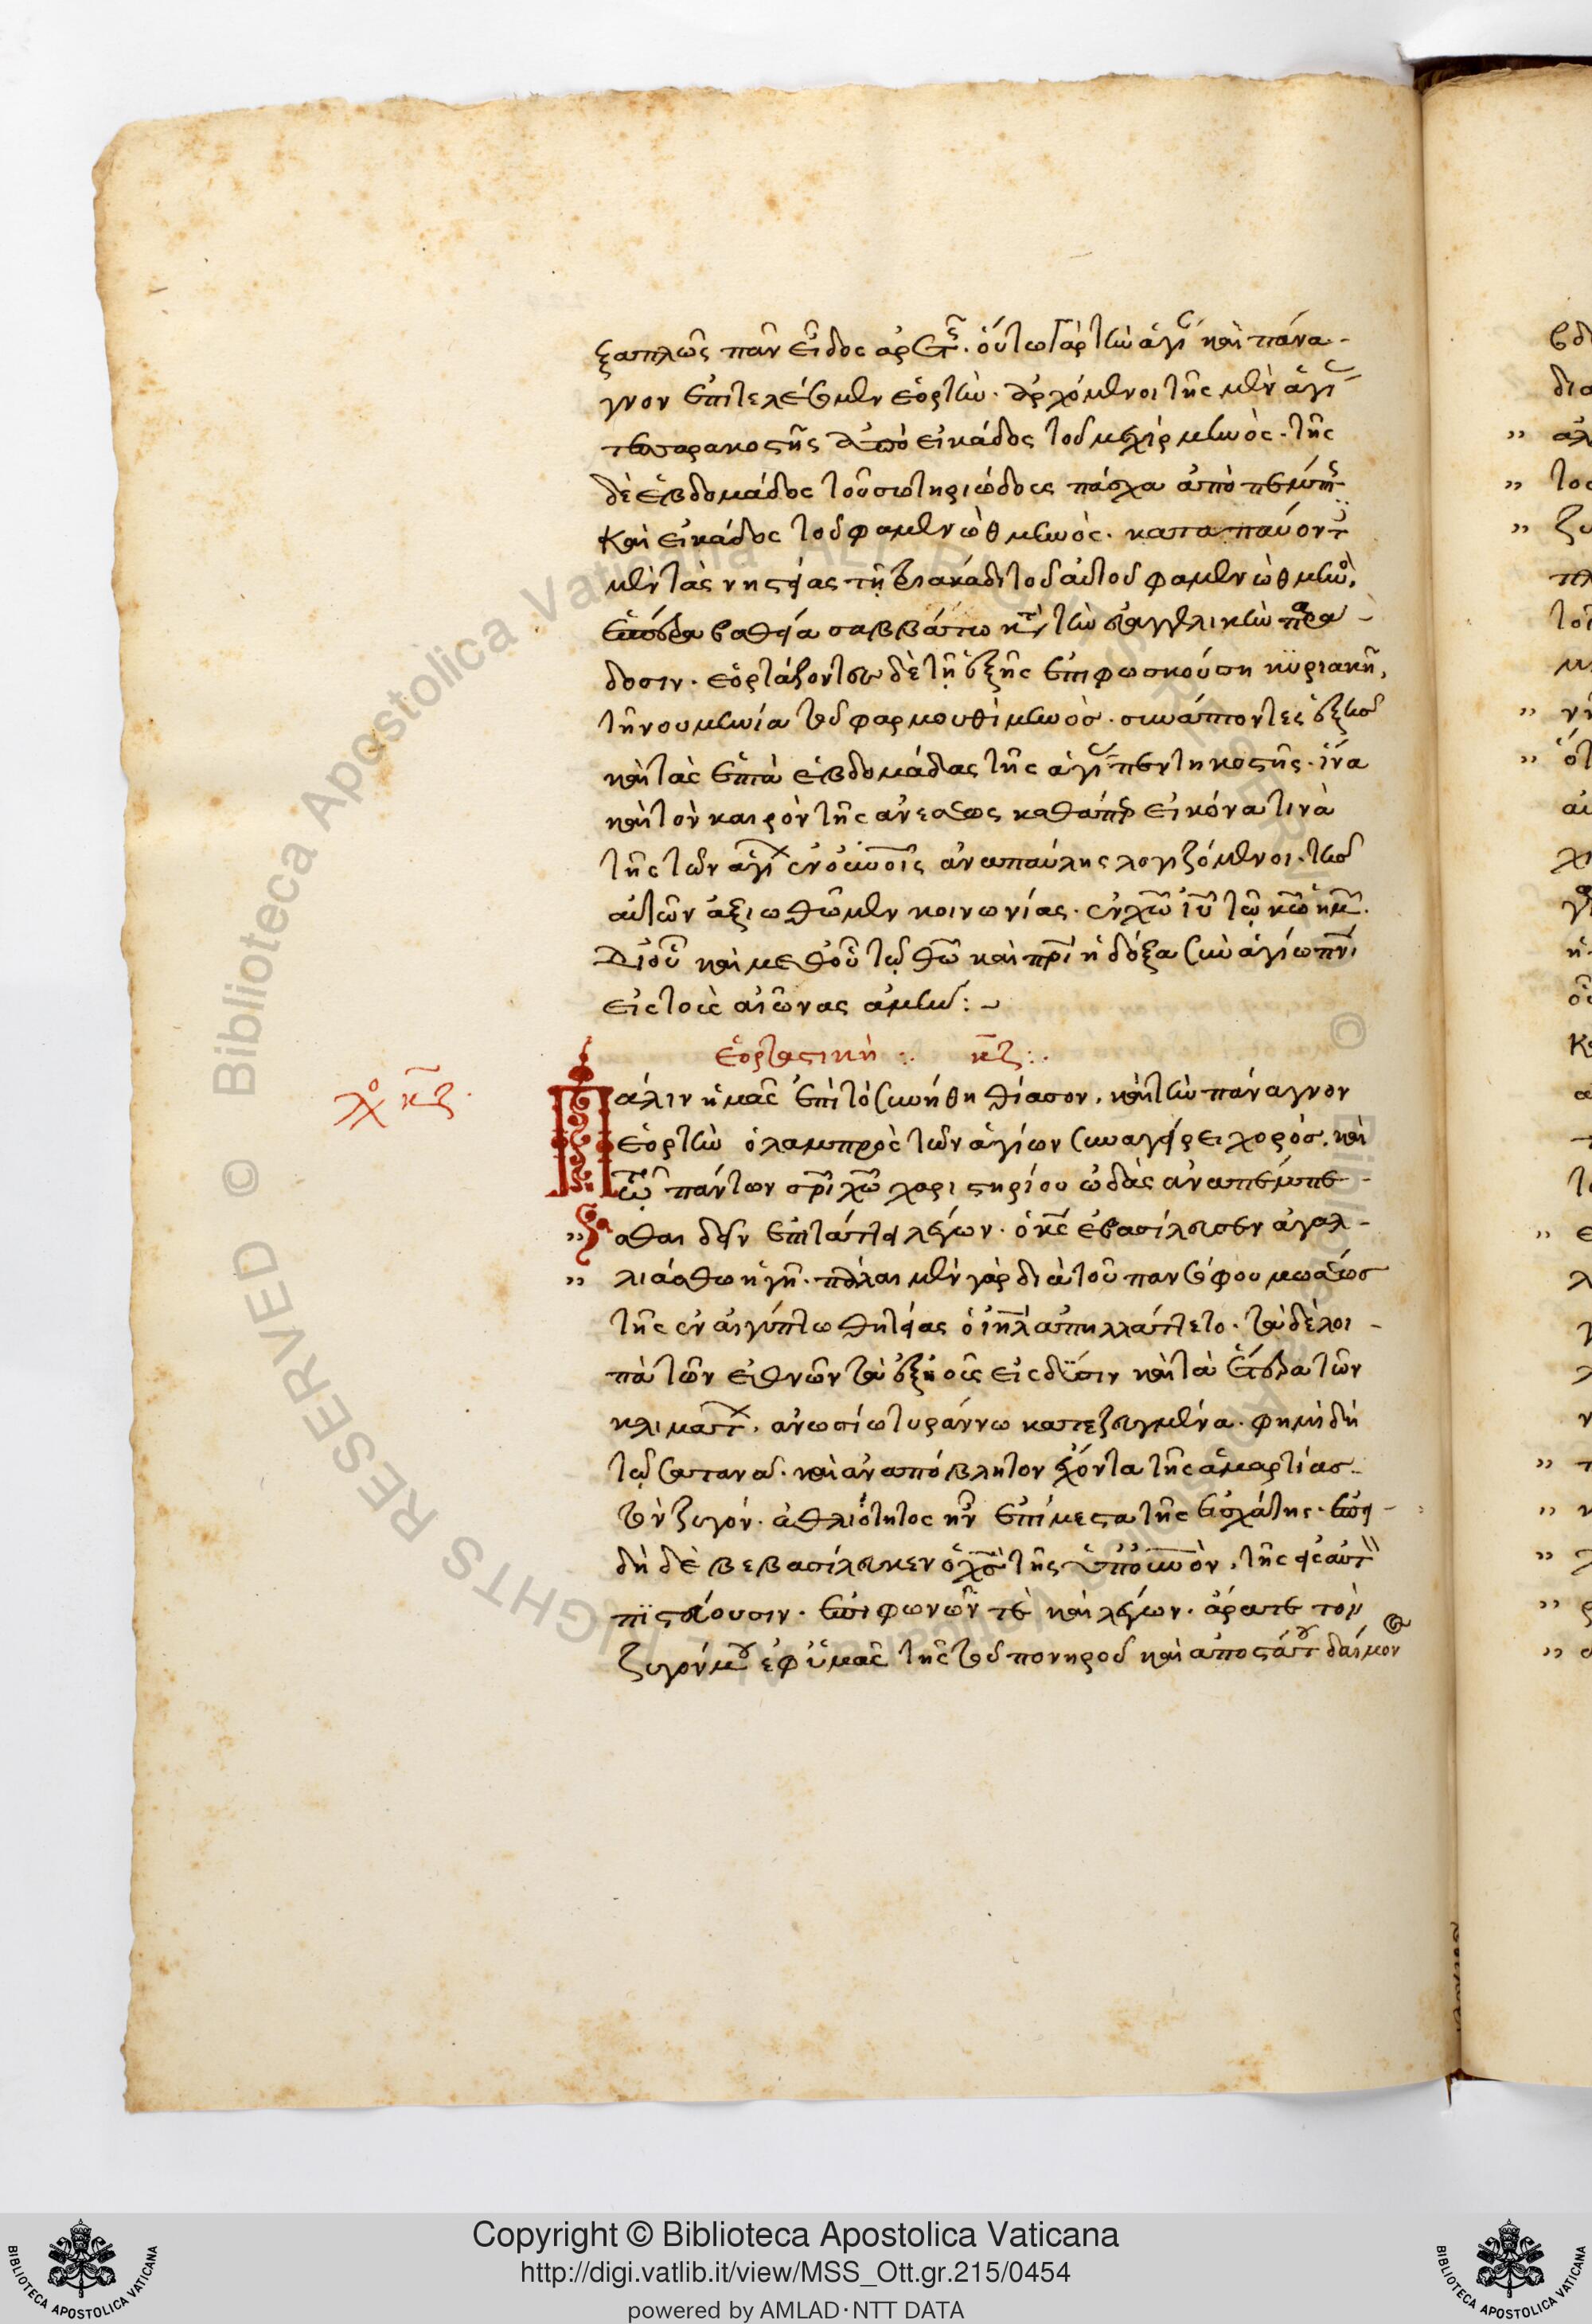 ξαπλῶς πᾶν εἶδος ἀρετῆς. οὕτω γὰρ τὴν ἁγίαν καὶ πάνα-
γνον ἐπιτελέσωμεν ἑορτήν. ἀρχόμενοι τῆς μὲν ἁγίας
τεσσαρακοστῆς ἀπὸ εἰκάδος τοῦ μεχὶρ μηνός. τῆς
δὲ ἑβδομάδος τοῦ σωτηριώδους πάσχα ἀπὸ πέμπτης
καὶ εἰκάδος τοῦ φαμενὼθ μηνός. καταπαύοντες
μὲν τὰς νηστείας τῇ τριακάδι τοῦ αὐτοῦ φαμενὼθ μηνὸς,
ἑσπέρᾳ βαθείᾳ σαββάτω κατὰ τὴν εὐαγγελικὴν παρά-
δοσιν. ἑορτάζοντες δὲ τῇ ἑξῆς ἐπιφωσκούσῃ κυριακῇ,
τῇ νουμηνία τοῦ φαρμουθὶ μηνός. συνάπτοντες ἑξῆς
καὶ τὰς ἑπτὰ ἑβδομάδας τῆς ἁγίας πεντηκοστῆς. ἵνα
καὶ τὸν καιρὸν τῆς ἀνέσεως καθάπερ εἰκόνα τινὰ
τῆς τῶν ἁγίων ἐν οὐνοῖς ἀναπαύλης λογιζόμενοι. τῆς
αὐτῶν ἀξιωθῶμεν κοινωνίας. ἐν χῶ ἰῦ τῶ κῶ ἡμῶν.
Δι οὗ καὶ μεθ οὗ τῷ θῶ καὶ πρὶ ἡ δόξα σὺν ἁγίω πνι
εἰς τοὺς αἰῶνας ἀμήν: ~
Ἑορταστικὴ :. κζ :.
λόγος κζ.
Πάλιν ἡμᾶς ἐπὶ τὸ συνήθη θίασον, καὶ τὴν πάναγνον
ἑορτὴν ὁ λαμπρὸς τῶν ἁγίων συναγείρει χορός. καὶ
τῷ πάντων σρι χῶ χαριστηρίου ὠδὰς ἀναπέμπε-
σθαι δεῖν ἐπιτάττει λέγων. ὁ κς ἐβασίλευσεν ἀγαλ-
λιάσθω ἡ γῆ. πάλαι μὲν γὰρ διὰ τοῦ πανσόφου μωσέως
τῆς ἐν αἰγύπτω θητείας ὁ ἰηλ ἀπηλλάττετο. τὰ δὲ λοι-
πὰ τῶν ἐθνῶν τὰ ἑξῆς οἷς εἰς δύσιν καὶ τὰ ἕτερα τῶν
κλιμάτων. ἀνοσίω τυράννω κατεζευγμένα. φημὶ δὴ
τῷ σατανᾶ. καὶ ἀναπόβλητον ἔχοντα τῆς ἁμαρτίας
τὸν ζυγόν. ἀθλιότητος ἦν ἐπίμεστα τῆς ἐσχάτης. ἐπει-
δὴ δὲ βεβασίλευκεν ὁ χς τῆς ὑπ οὐνὸν, τῆς εἰς αὐτὸν
πιστεύουσιν. ἐπιφωνῶν τε καὶ λέγων. ἄρατε τὸν
ζυγόν μου ἐφ ὑμᾶς τῆς τοῦ πονηροῦ καὶ ἀποστάτου δαίμονος